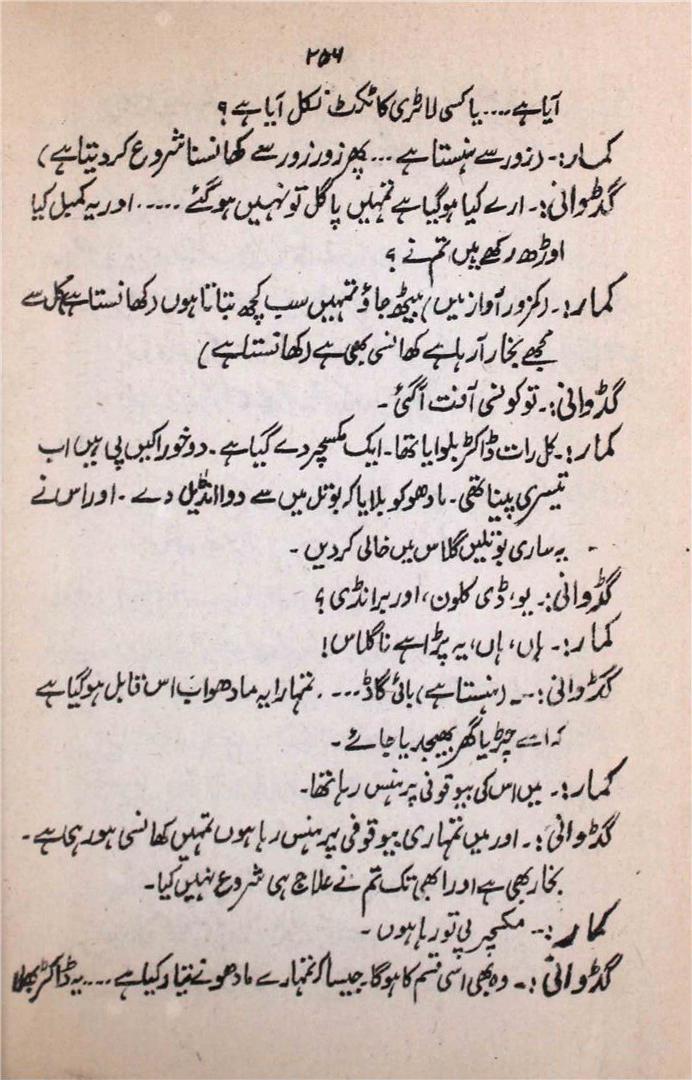 ۲۵۶
آیا ہے .... یا کسی لاٹری کا ٹکٹ نکل آیا ہے ؟
کمار :۔ (زور سے ہنستا ہے ... پھر زور زور سے کھانسنا شروع کر دیتا ہے)
گڈوانی :۔ ارے کیا ہو گیا ہے تمہیں پاگل تو نہیں ہو گئے ..... اور یہ کمبل کیا
اوڑھ رکھے ہیں تم نے ؟
کمار :۔ (کمزور آواز میں) بیٹھ جاؤ تمہیں سب کچھ بتاتا ہوں (کھانستا ہے) کل سے
مجھے بخار آ رہا ہے کھانسی بھی ہے (کھانستا ہے)
گڈوانی :۔ تو کونسی آفت آ گئی ۔
کمار :۔ کل رات ڈاکٹر بلوایا تھا ۔ ایک مکسچر دے گیا ہے ۔ دو خوراکیں پی ہیں اب
تیسری پینا تھی ۔ مادھو کو بلایا کہ بوتل میں سے دوا انڈیل دے ۔ اور اس نے
یہ ساری بوتلیں گلاس میں خالی کر دیں ۔
گڈوانی :۔ یو، ڈی کلون، اور برانڈی ؟
کمار :۔ ہاں، ہاں، یہ پڑا ہے نا گلاس !
گڈوانی :۔ (ہنستا ہے) بائی گاڈ .... تمہارا یہ مادھو اب اس قابل ہو گیا ہے
کہ اسے چڑیا گھر بھیجدیا جائے ۔
کمار :۔ میں اس کی بیوقوفی پر ہنس رہا تھا ۔
گڈوانی :۔ اور میں تمہاری بیوقوفی پر ہنس رہا ہوں تمہیں کھانسی ہو رہی ہے ۔
بخار بھی ہے اور ابھی تک تم نے علاج ہی شروع نہیں کیا ۔
کمار :۔ مکسچر پی تو رہا ہوں ۔
گڈوانی :۔ وہ بھی اسی قسم کا ہوگا جیسا کہ تمہارے مادھو نے تیار کیا ہے .... یہ ڈاکٹر بھلا